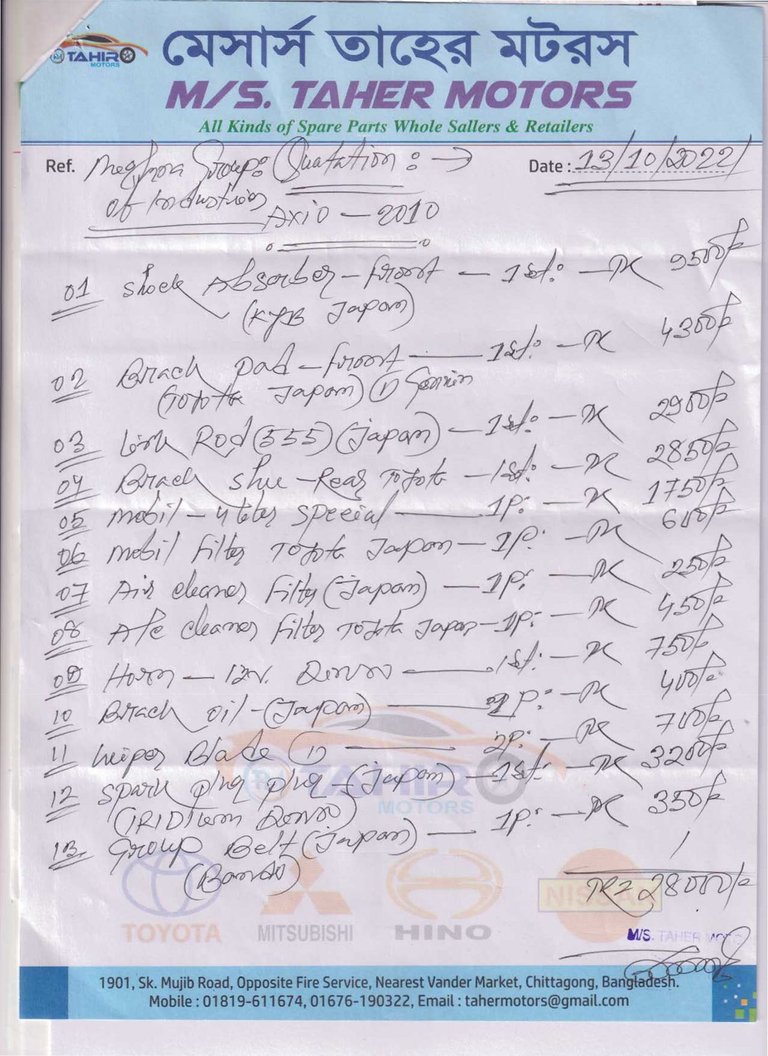 TAHIR
MOTORS
মেসার্স তাহের মটরস
M/S. TAHER MOTORS
All Kinds of Spare Parts Whole Sallers & Retailers
Ref. Meghna Group: Quatation : → Date : 13/10/2022/
of Industries
Axio — 2010
01 Shock Absorber - front — 1st: — TK 9500/-
(KYB Japan)
02 Brach pad - front — 1st: — TK 4300/-
(Toyota Japan)
03 Link Rod (555) (Japan) — 1st: — TK 2900/-
04 Brach shu - Rear Toyota — 1st: — TK 2850/-
05 Mobil - 4 liter special — 1P: — TK 1750/-
06 Mobil Filter Toyota Japan — 1P: — TK 600/-
07 Air cleaner Filter (Japan) — 1P: — TK 250/-
08 A/c cleaner Filter Toyota Japan — 1P: — TK 450/-
09 Horn — 12v. Denso — 1st: — TK 750/-
10 Brach oil - (Japan) — P: — TK 400/-
11 wiper Blade — 2P: — TK 700/-
12 Spark plug (Japan) — 1st — TK 3200/-
(IRIDium Denso)
13. Group Belt (Japan) — 1P: — TK 350/-
(Bando)
TK= 28000/-
TAHIR
MOTORS
TOYOTA MITSUBISHI HINO NISSAN
M/S. TAHER MOTORS
1901, Sk. Mujib Road, Opposite Fire Service, Nearest Vander Market, Chittagong, Bangladesh.
Mobile : 01819-611674, 01676-190322, Email : tahermotors@gmail.com